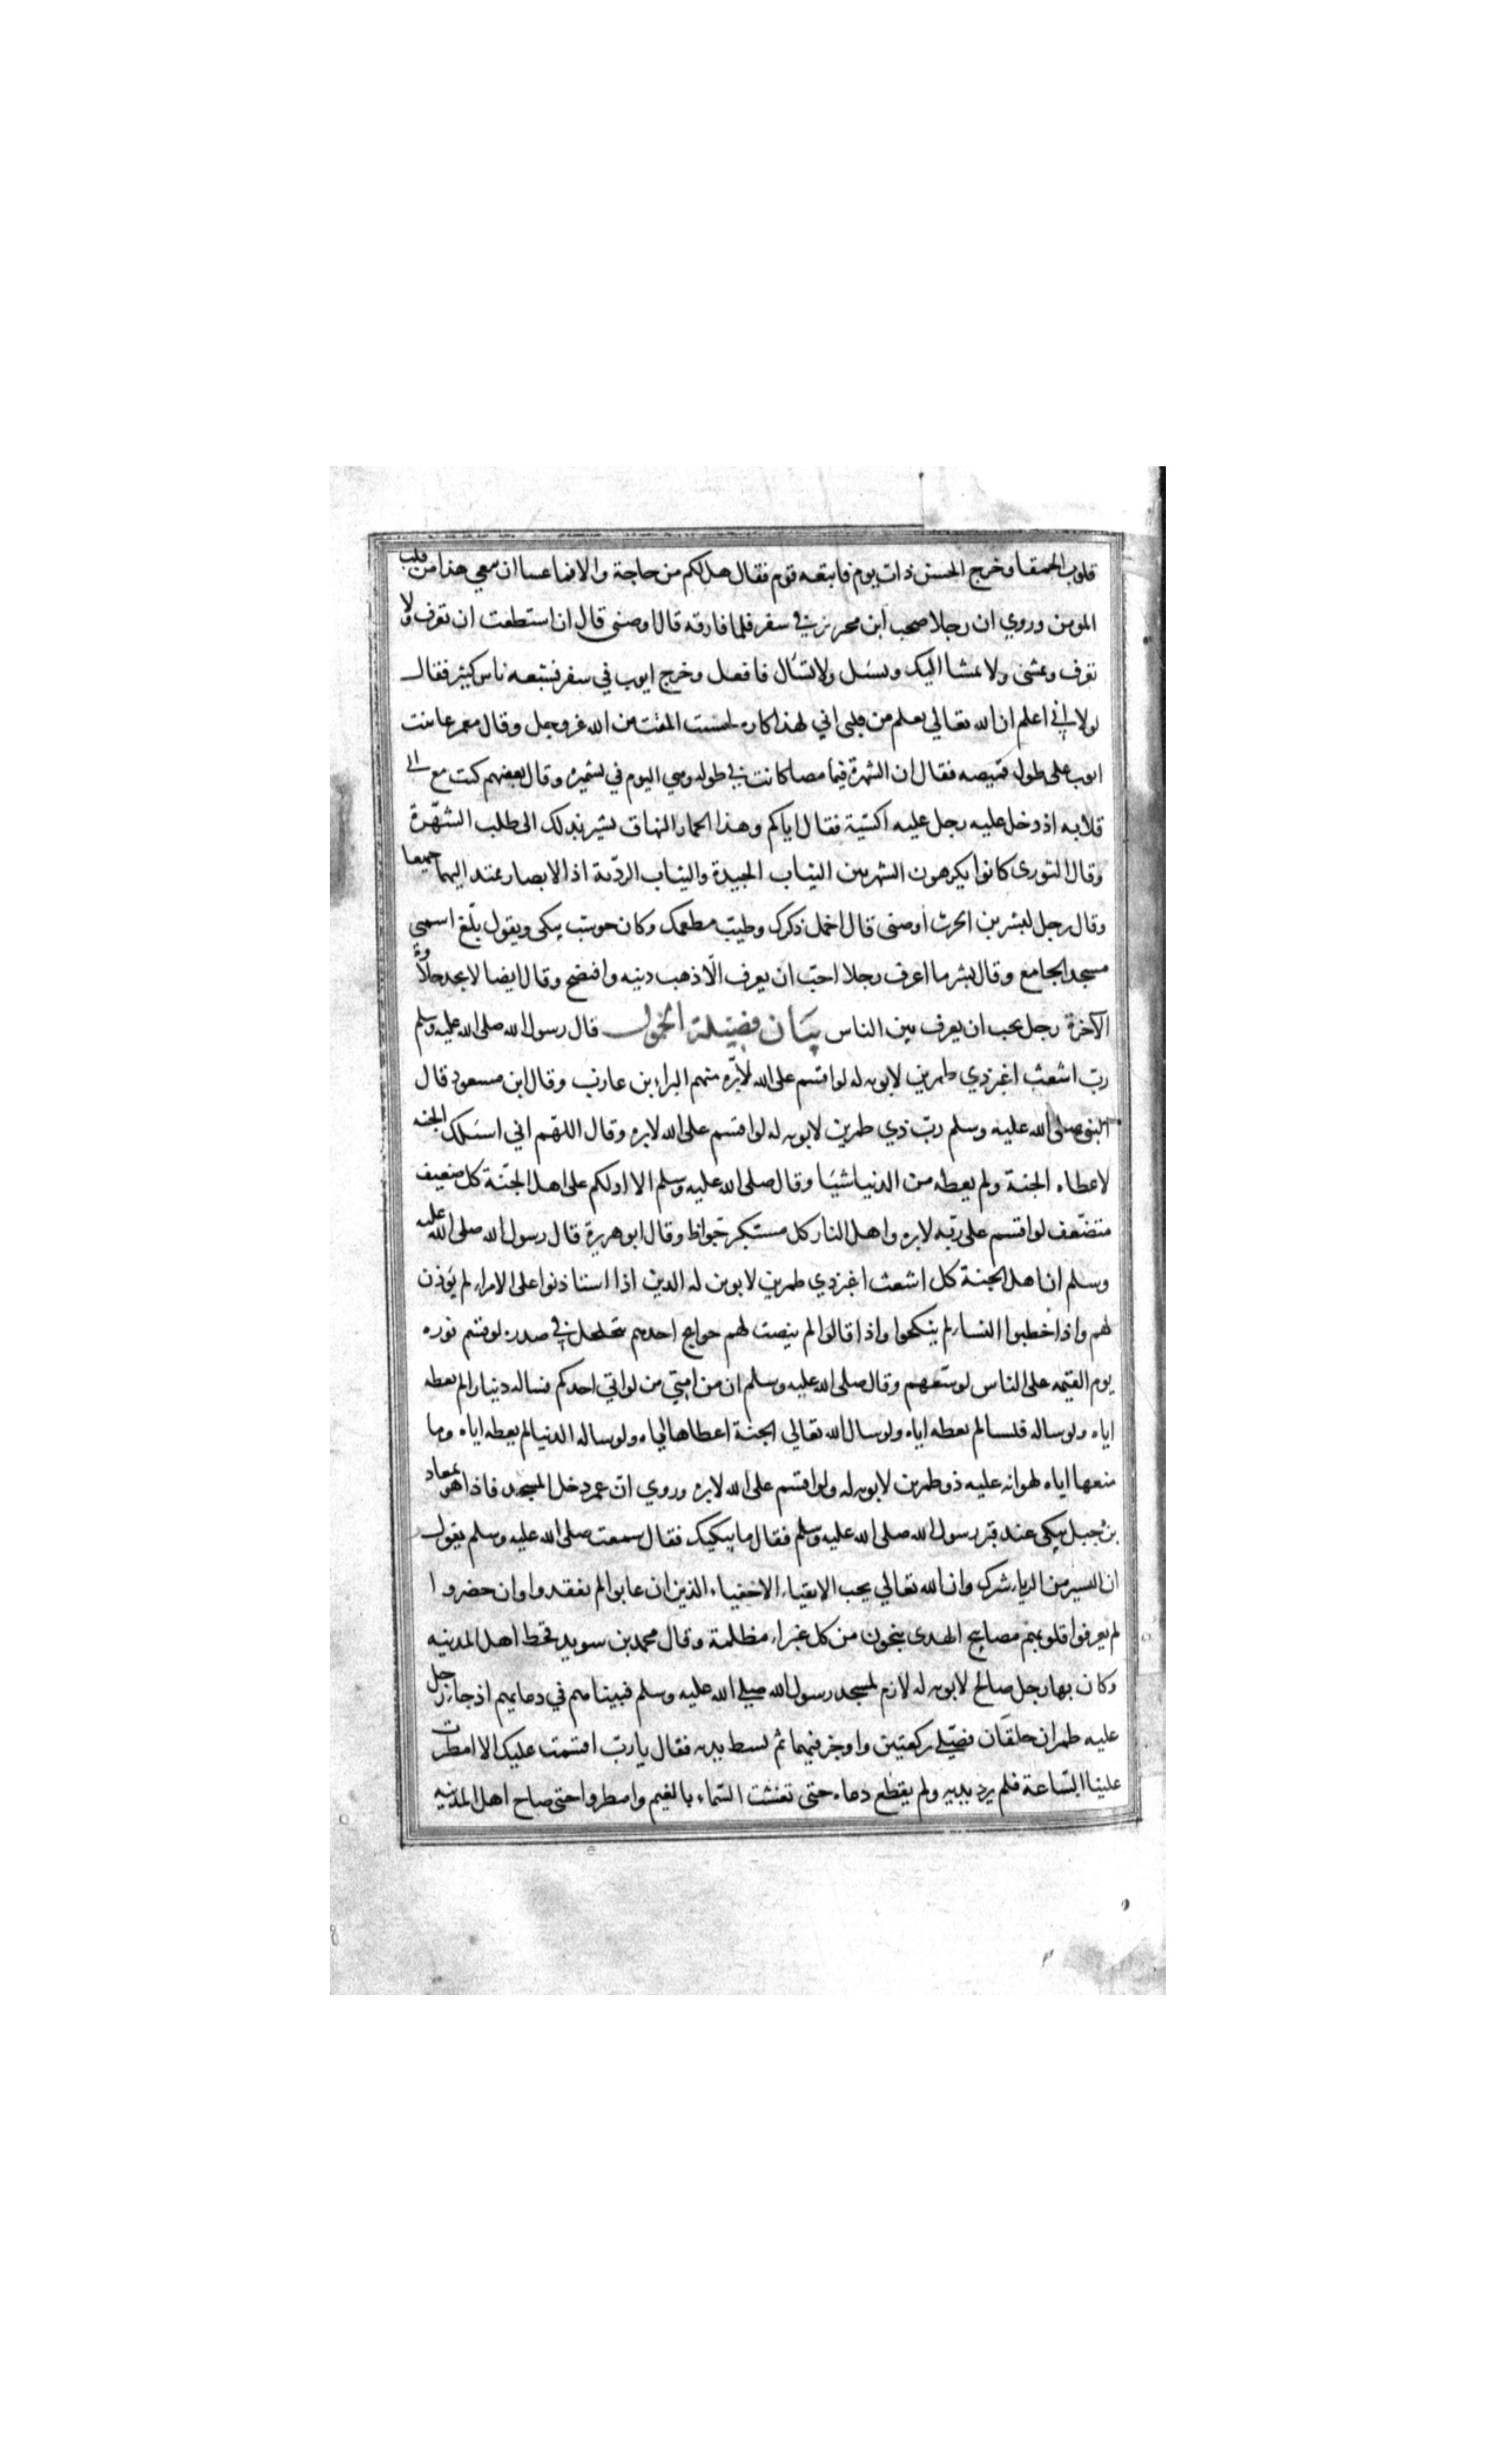 قلوب الحمقا وخرج الحسن ذات يوم فاتبعه قوم فقال هل لكم من حاجة والا فما عسا ان سعي هذا من قلب
المومن وروي ان رجلا صحب ابن محريز في سفر فلما فارقه قال اوصنى قال ان استطعت ان تعرف ولا
تعرف وتمشى ولا يمشا اليك وتسئل ولا تسأل فافعل وخرج ايوب في سفر فتبعه ناس كثير فقال
لولا اني اعلم ان الله تعالي يعلم من قلبى اني لهذا كاره لخشيت المقت من الله عز وجل وقال معمر عاتبت
ايوب على طول قميصه فقال ان الشهرة فيما مضا كانت في طوله وهي اليوم في تشميره وقال بعضهم كنت مع ابي
قلابه اذ دخل عليه رجل عليه اكسية فقال اياكم وهذا الحمار النهاق يشير بذلك الى طلب الشهرة
وقال الثورى كانوا يكرهون الشهرتين الثياب الجيدة والثياب الرديّة اذ الابصار تمتد اليهما جميعا
وقال رجل لبشر بن الحرث أوصنى قال اخمل ذكرك وطيب مطعمك وكان حوشب يبكى ويقول بلّغ اسمي
مسجد الجامع وقال بشر ما اعرف رجلا احبّ ان يعرف الّا ذهب دينه وافتضح وقال ايضا لا يجد حلاوة
الآخرة رجل يحب ان يعرف بين الناس بيان فضيلة الخمول قال رسول الله صلى الله عليه وسلم
ربّ اشعث اغبر ذي طمرين لا يوبه له لو اقسم على الله لابرّه منهم البراء بن عازب وقال ابن مسعود قال
النبى صلى الله عليه وسلم ربّ ذي طمرين لا يوبه له لو اقسم على الله لابره وقال اللهّم اني اسئلك الجنه
لاعطاه الجنة ولم يعطه من الدنيا شيئا وقال صلى الله عليه وسلم الا ادلكم على اهل الجنّة كل ضعيف
متضعّف لو اقسم على ربّه لابره واهل النار كل مستكبر جواظ وقال ابو هريرة قال رسول الله صلى الله عليه
وسلم ان اهل الجنة كل اشعث اغبر ذي طمرين لا يوبن له الذين اذا استاذنوا على الامراء لم يؤذن
لهم واذا خطبوا النساء لم ينكحوا واذا قالوا لم ينصت لهم حوايج احدهم تتخلخل في صدره لو قسم نوره
يوم القيمه على الناس لوسعهم وقال صلى الله عليه وسلم ان من امتي من لو اتي احدكم فساله دينارا لم يعطه
اياه ولو ساله فلسا لم يعطه اياه ولو سال الله تعالي الجنة اعطاها اياه ولو ساله الدنيا لم يعطه اياه وما
منعها اياه لهوانه عليه ذو طمرين لا يوبه له ولو اقسم على الله لابره وروي ان عمر دخل المسجد فاذا هو بمعاد
بن جبل يبكى عند قبر رسول الله صلى الله عليه وسلم فقال ما يبكيك فقال سمعت صلى الله عليه وسلم يقول
ان اليسير من الرياء شرك وان الله تعالي يحب الاتقياء الاخفياء الذين ان غابوا لم يفقدوا وان حضروا
لم يعرفوا قلوبهم مصابيح الهدى ينجون من كل غبراء مظلمة وقال محمد بن سويد قحط اهل المدينه
وكان بها رجل صالح لا يوبه له لازم لمسجد رسول الله صلى الله عليه وسلم فبينا هم في دعايهم اذ جاء رجل
عليه طمران خلقان فصلّى ركعتين واوجز فيهما ثم بسط يديه فقال يا ربّ اقسمت عليك الا امطرت
علينا السّاعة فلم يرد يديه ولم يقطع دعاه حتى تغشت السّماء بالغيم وامطروا حتى صاح اهل المدينه